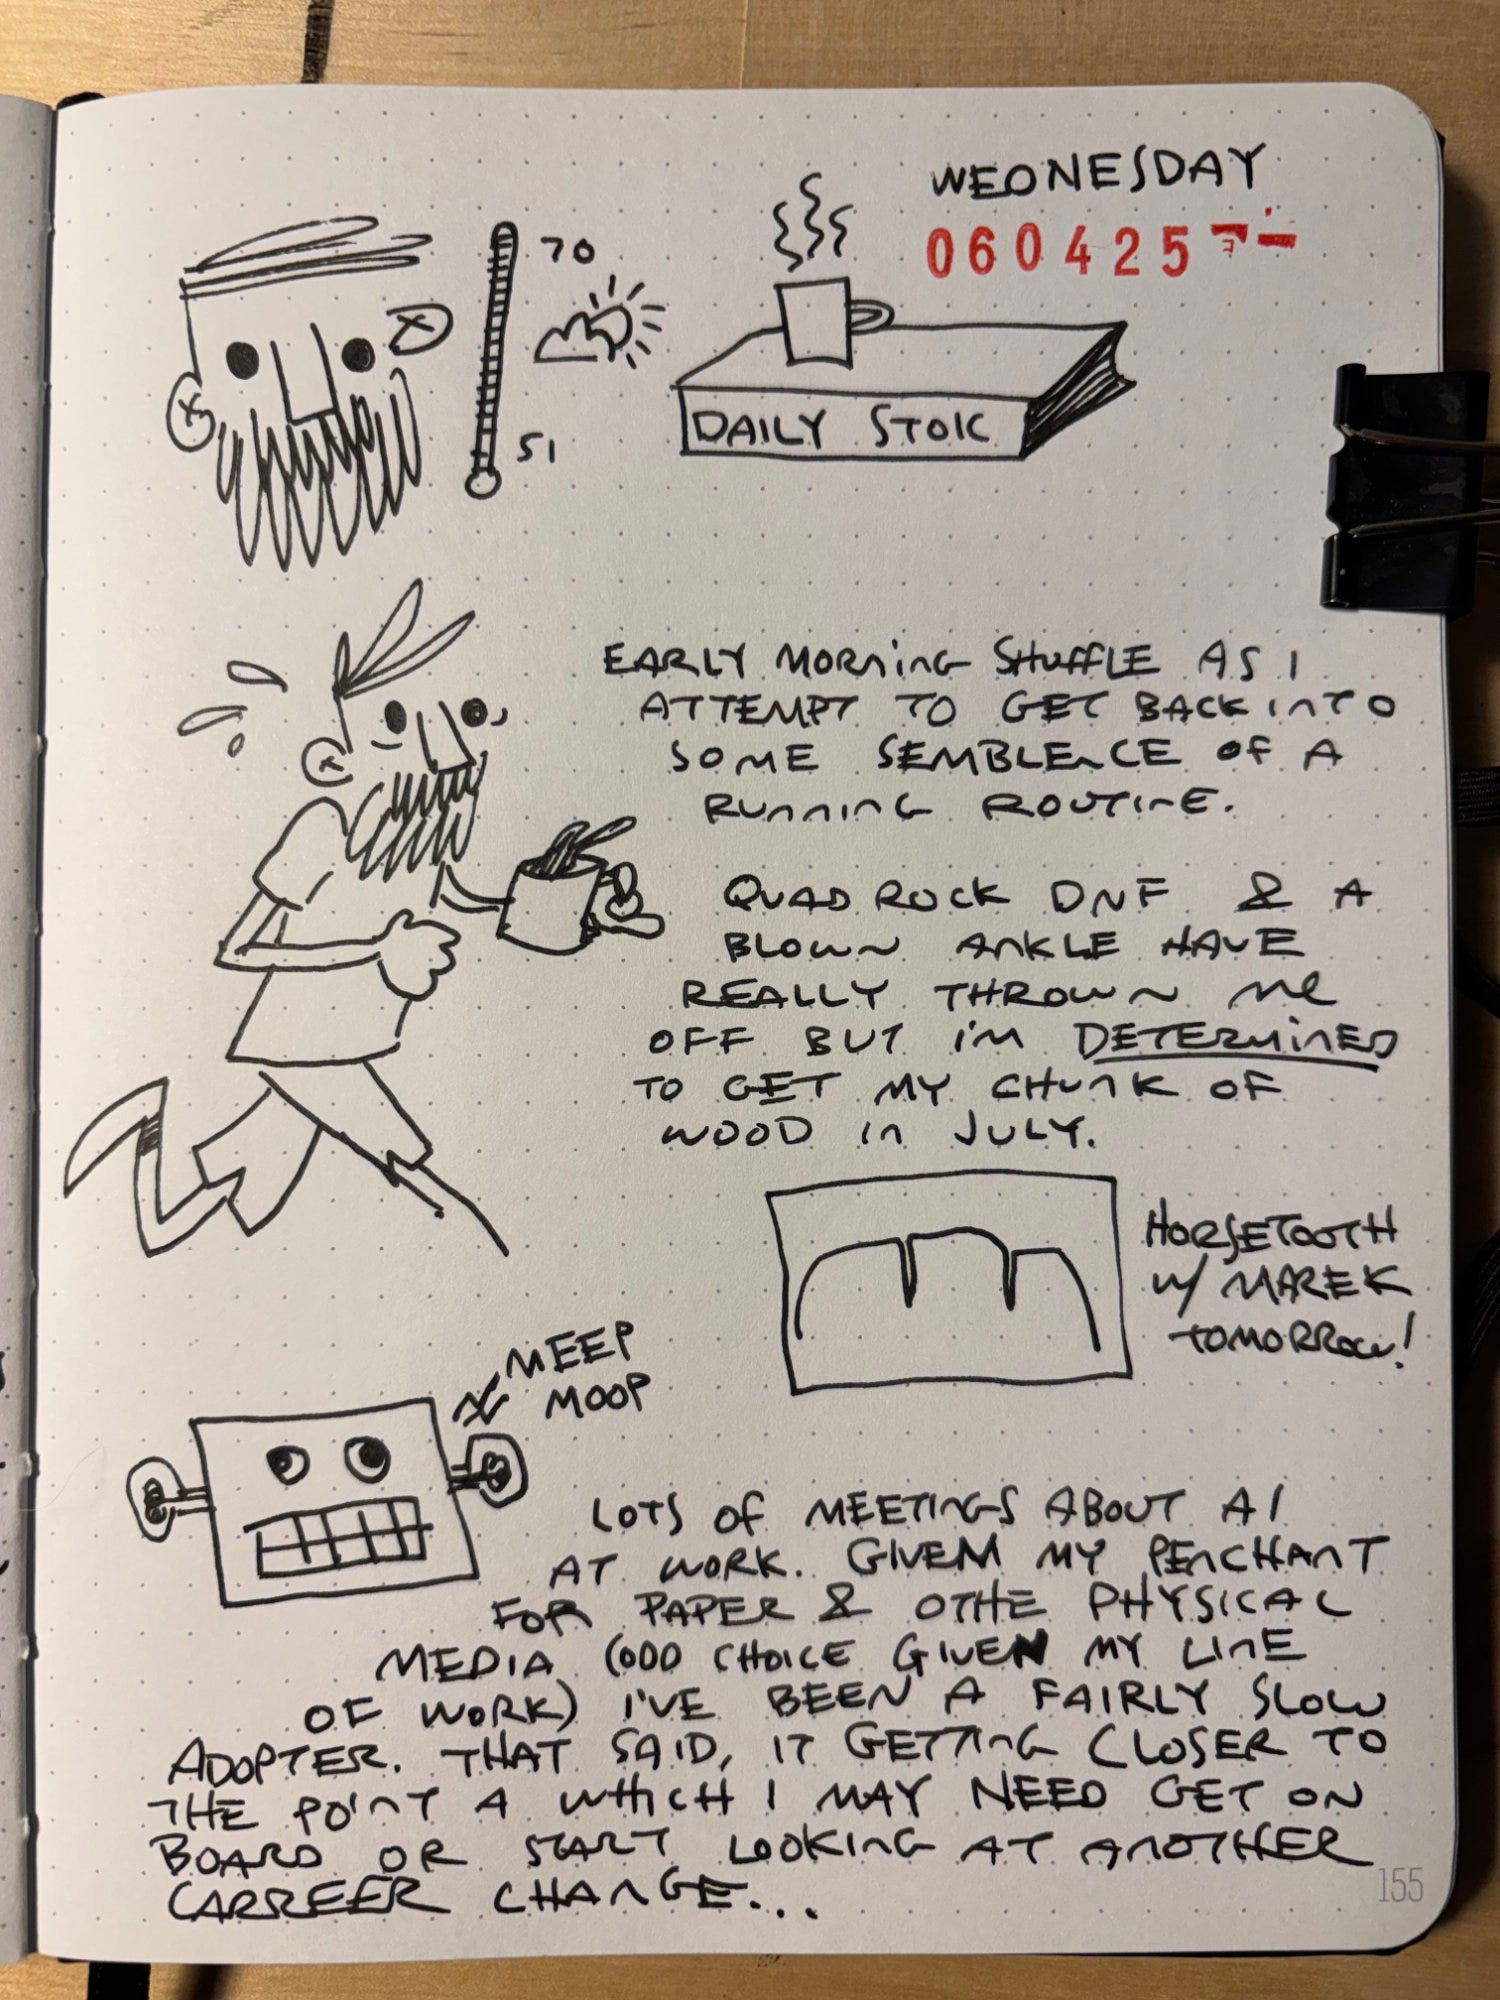 WEDNESDAY
060425
70
51
DAILY STOIC
EARLY MORNING SHUFFLE AS I
ATTEMPT TO GET BACK INTO
SOME SEMBLENCE OF A
RUNNING ROUTINE.
QUAD ROCK DNF & A
BLOWN ANKLE HAVE
REALLY THROWN ME
OFF BUT I'M DETERMINED
TO GET MY CHUNK OF
WOOD IN JULY.
HORSETOOTH
W/ MAREK
TOMORROW!
MEEP
MOOP
LOTS OF MEETINGS ABOUT AI
AT WORK. GIVEM MY PENCHANT
FOR PAPER & OTHE PHYSICAL
MEDIA (ODD CHOICE GIVEN MY LINE
OF WORK) I'VE BEEN A FAIRLY SLOW
ADOPTER. THAT SAID, IT GETTING CLOSER TO
THE POINT A WHICH I MAY NEED GET ON
BOARD OR START LOOKING AT ANOTHER
CARREER CHANGE...
155